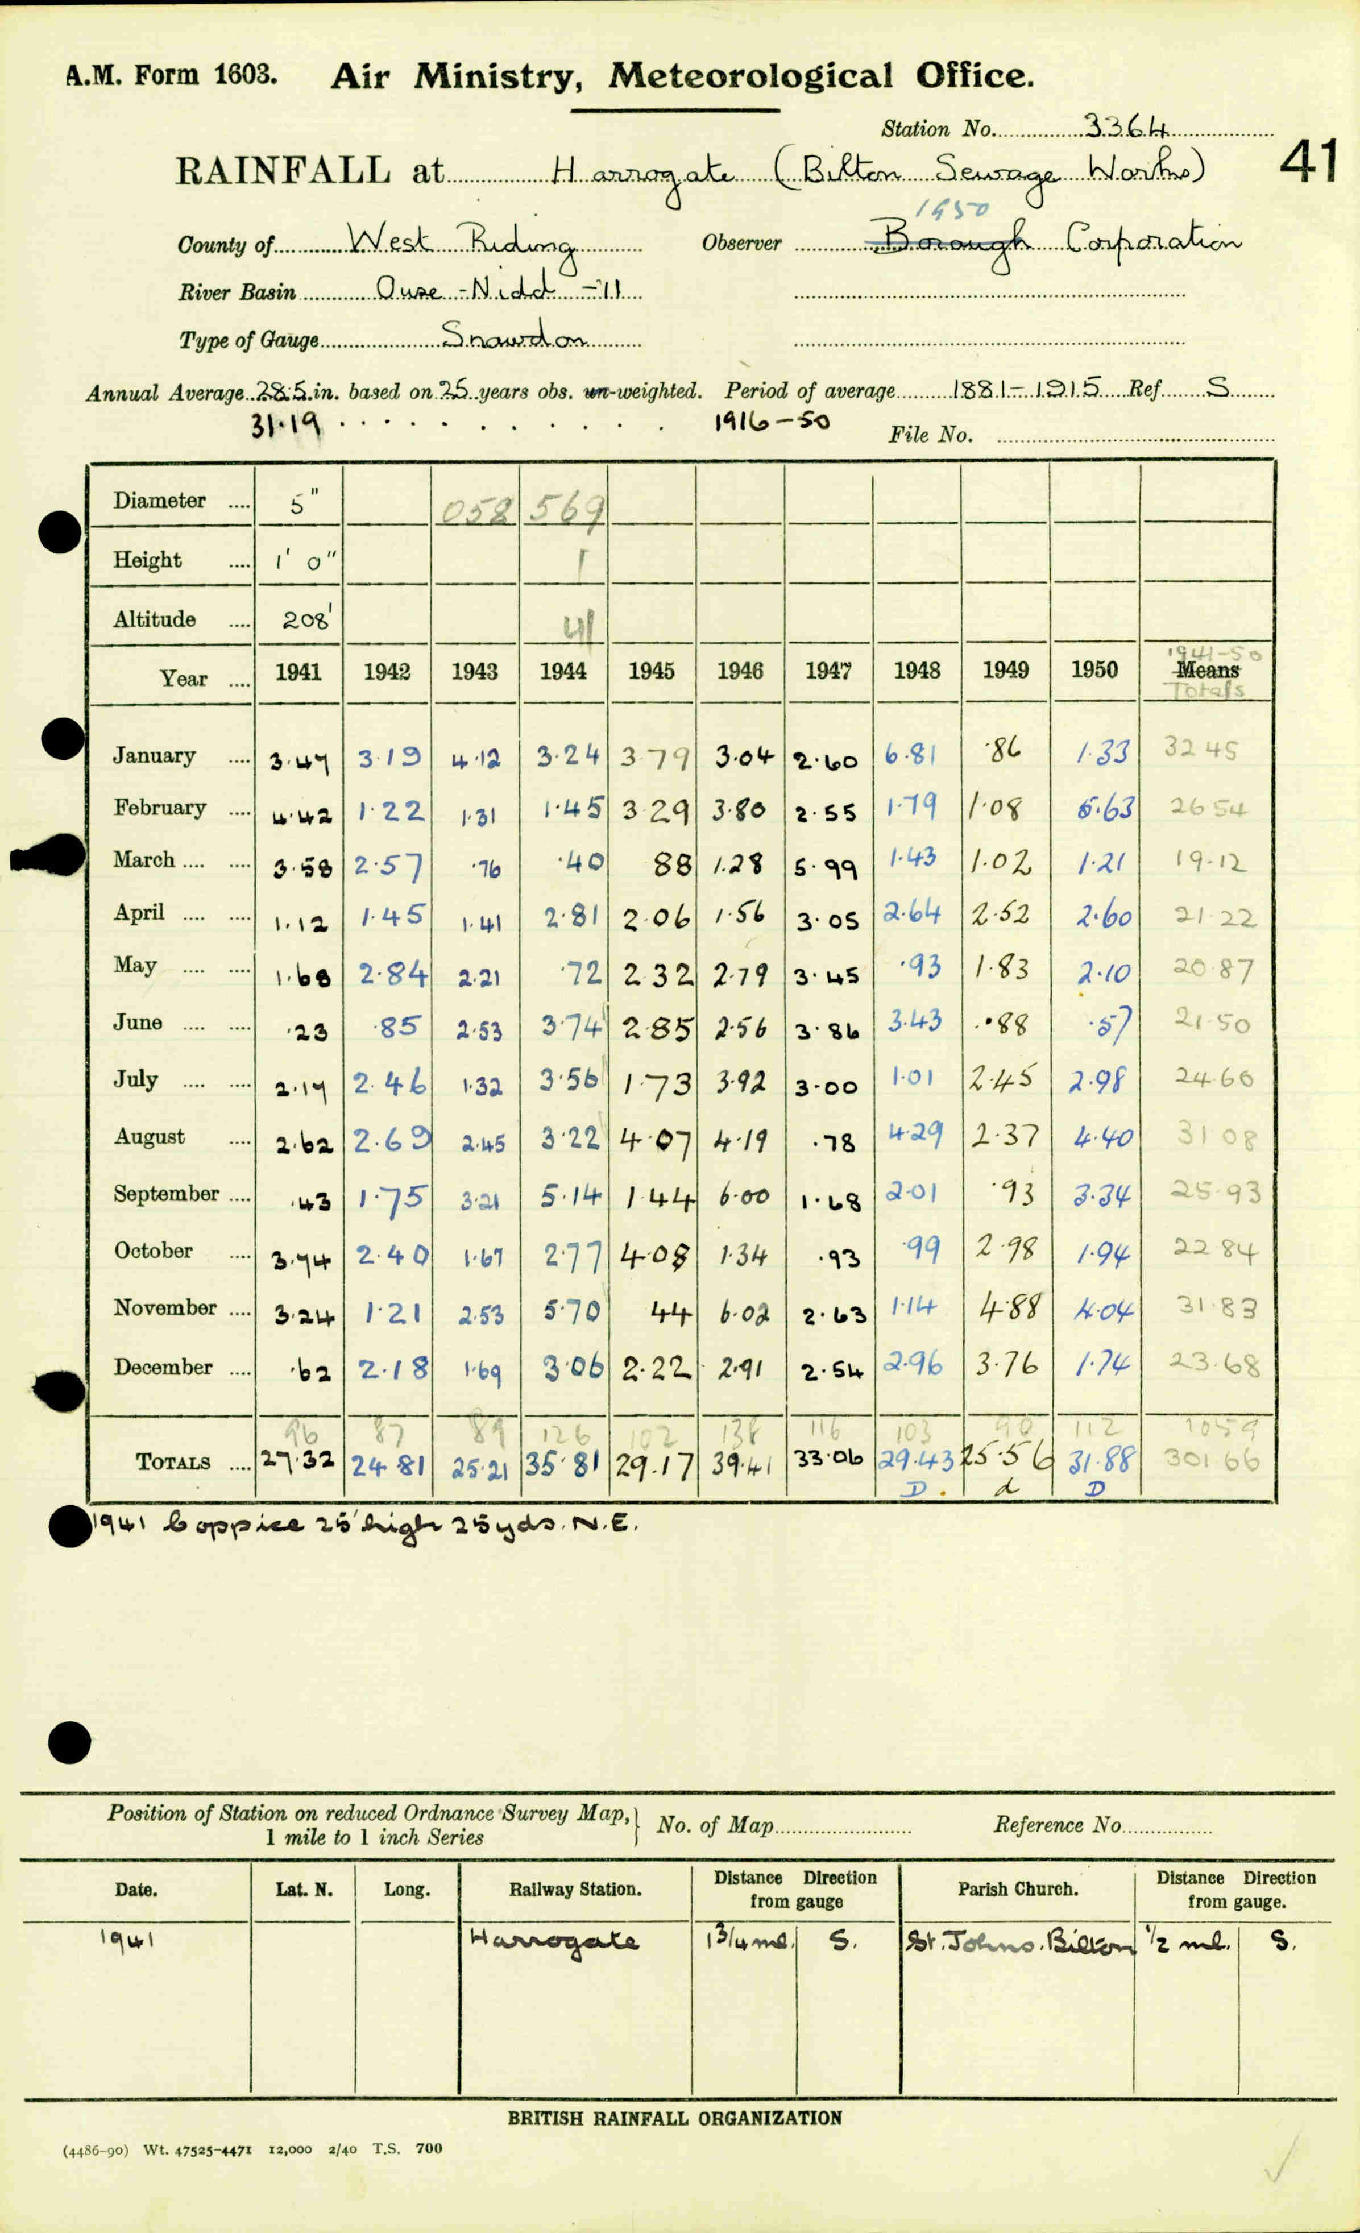 A.M. Form 1603. Air Ministry, Meteorological Office.
Station No. 3364
RAINFALL at Harrogate (Bilton Sewage Works) 41
1950
County of West Riding Observer Borough Corporation
River Basin Ouse - Nidd - 11
Type of Gauge Snowdon
Annual Average 28.5 in. based on 25 years obs. un-weighted. Period of average 1881-1915 Ref S
31.19 . . . . . . . . . . . . 1916-50
File No.
Diameter .... 5" 058 569
Height .... 1' 0" 1
Altitude .... 208' 41
1941-50
Year .... 1941 1942 1943 1944 1945 1946 1947 1948 1949 1950 Means
Totals
January .... 3.47 3.19 4.12 3.24 3 79 3.04 2.60 6.81 .86 1.33 32 45
February .... 4.42 1.22 1.31 1.45 3 29 3.80 2.55 1.79 1.08 5.63 26 54
March .... .... 3.58 2.57 .76 .40 88 1.28 5.99 1.43 1.02 1.21 19.12
April .... .... 1.12 1.45 1.41 2.81 2.06 1.56 3.05 2.64 2.52 2.60 21.22
May .... .... 1.68 2.84 2.21 .72 2 32 2.79 3.45 .93 1.83 2.10 20.87
June .... .... .23 .85 2.53 3.74 2.85 2.56 3.86 3.43 .88 .57 21.50
July .... .... 2.17 2.46 1.32 3.56 1.73 3.92 3.00 1.01 2.45 2.98 24.60
August .... 2.62 2.69 2.45 3.22 4.07 4.19 .78 4.29 2.37 4.40 31 08
September .... .43 1.75 3.21 5.14 1 44 6.00 1.68 2.01 .93 3.34 25.93
October .... 3.74 2.40 1.67 2.77 4.08 1.34 .93 .99 2.98 1.94 22 84
November .... 3.24 1.21 2.53 5.70 44 6.02 2.63 1.14 4.88 4.04 31.83
December .... .62 2.18 1.69 3.06 2.22 2.91 2.54 2.96 3.76 1.74 23.68
96 87 89 126 102 138 116 103 90 112 1059
TOTALS .... 27.32 24 81 25.21 35.81 29.17 39.41 33.06 29.43 25.56 31.88 301 66
D. d D
1941 Coppice 25' high 25 yds. N.E.
Position of Station on reduced Ordnance Survey Map, 1 mile to 1 inch Series No. of Map Reference No.
Date. Lat. N. Long. Railway Station. Distance Direction from gauge Parish Church. Distance Direction from gauge.
1941 Harrogate 1 3/4 ml. S. St. Johns. Bilton 1/2 ml. S.
BRITISH RAINFALL ORGANIZATION
(4486-90) Wt. 47525-4471 12,000 2/40 T.S. 700